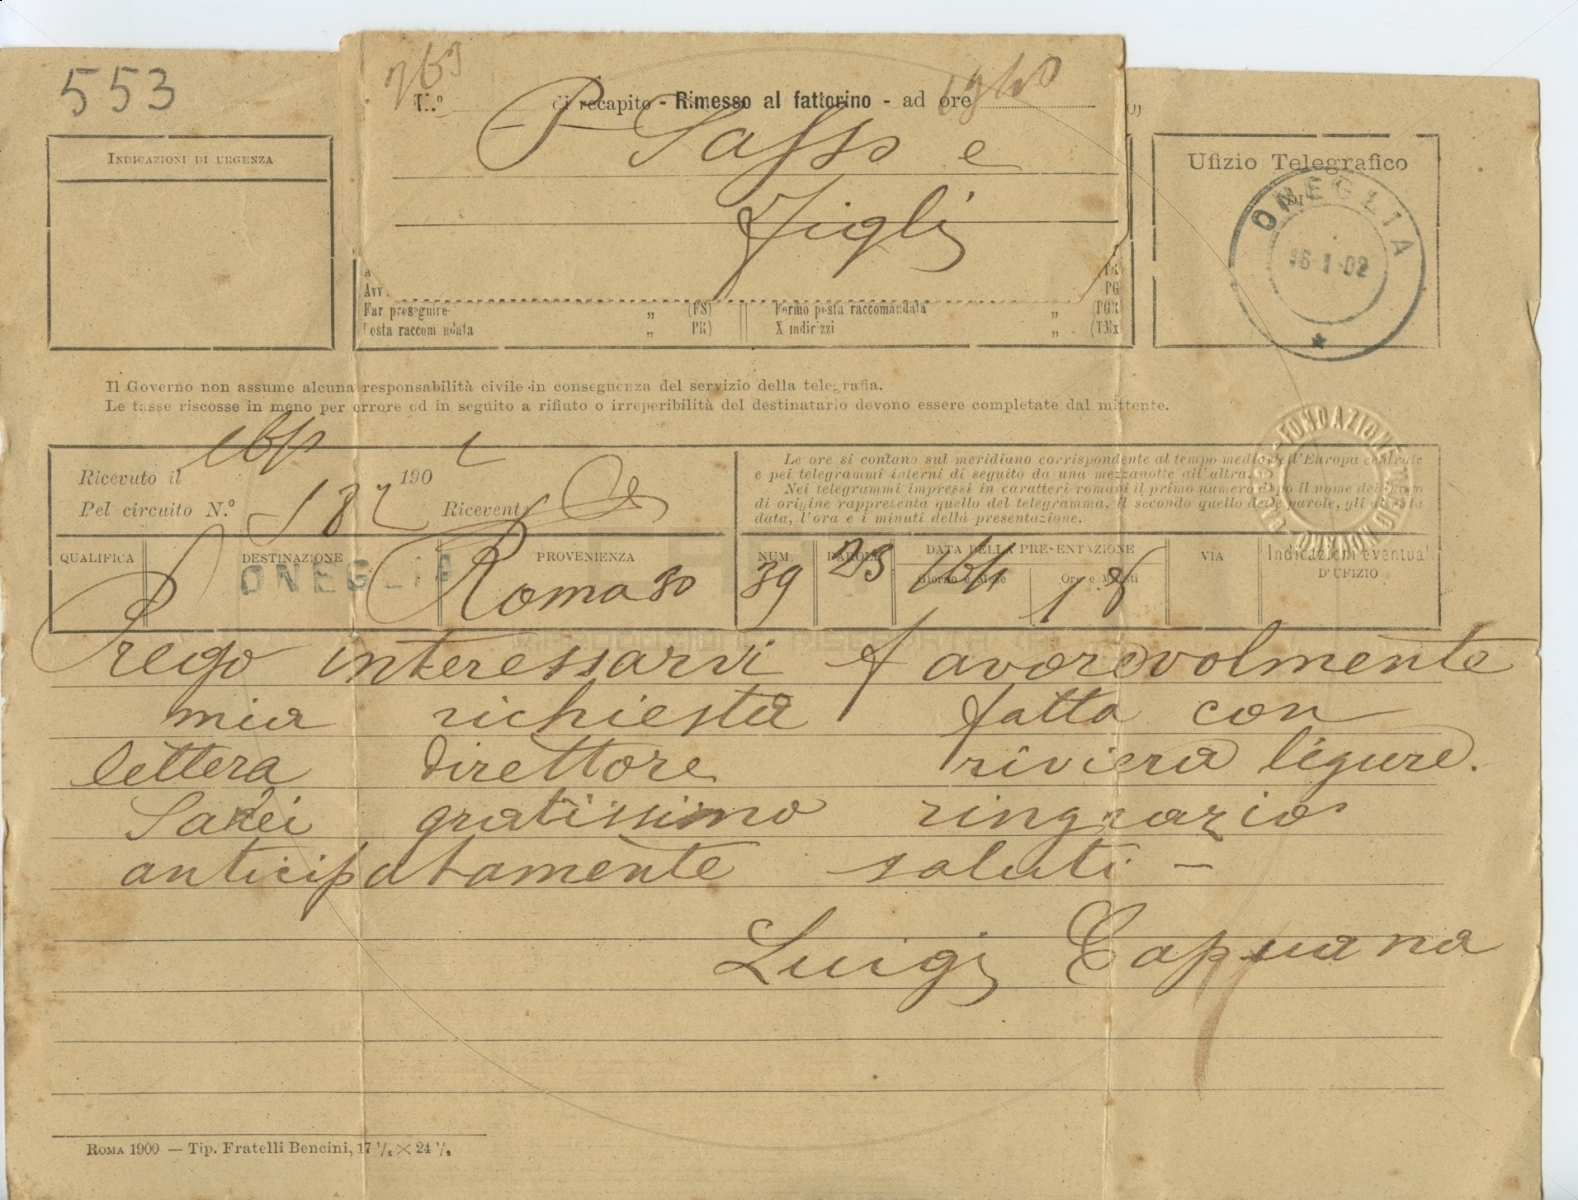 553
763
N.º di recapito - Rimesso al fattorino - ad ore 1940
P Sasso e
Figli
INDICAZIONI DI URGENZA
Ufizio Telegrafico
DI
ONEGLIA
16-1-02
Far proseguire „ (FS)
Fermo posta raccomandata „ (PGR
Posta raccomandata „ PR)
X indirizzi „ (TMx
Il Governo non assume alcuna responsabilità civile in conseguenza del servizio della telegrafia.
Le tasse riscosse in meno per errore od in seguito a rifiuto o irreperibilità del destinatario devono essere completate dal mittente.
Ricevuto il 16/1 1902
Pel circuito N.º 182 Ricevente
Le ore si contano sul meridiano corrispondente al tempo medio dell'Europa centrale
e pei telegrammi interni di seguito da una mezzanotte all'altra.
Nei telegrammi impressi in caratteri romani il primo numero dopo il nome del luogo
di origine rappresenta quello del telegramma, il secondo quello delle parole, gli altri la
data, l'ora e i minuti della presentazione.
QUALIFICA DESTINAZIONE PROVENIENZA NUM. PAROLE DATA DELLA PRESENTAZIONE VIA Indicazioni eventuali
Giorno e Mese Ore e Minuti D'UFIZIO
ONEGLIA Roma 80 39 23 16/1
Prego interessarvi favorevolmente
mia richiesta fatta con
lettera direttore riviera ligure.
Sarei gratissimo ringrazio
anticipatamente saluti –
Luigi Capuana
ROMA 1900 — Tip. Fratelli Bencini, 17 ½ × 24 ½